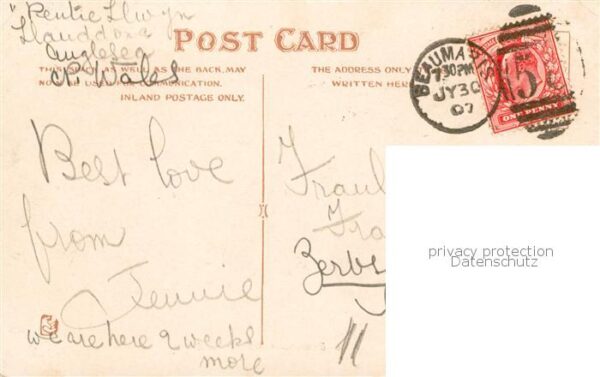 "Pentie Llwyn
Llanddona
Anglesea
N. Wales
POST CARD
THIS SPACE AS WELL AS THE BACK, MAY
NOW BE USED FOR COMMUNICATION.
INLAND POSTAGE ONLY.
THE ADDRESS ONLY
WRITTEN HERE
BEAUMARIS
7.30PM
JY 30
07
ONE PENNY
Best love
from
Jennie
we are here 2 weeks
more
Fraul
Fra
Zerbs
privacy protection
Datenschutz